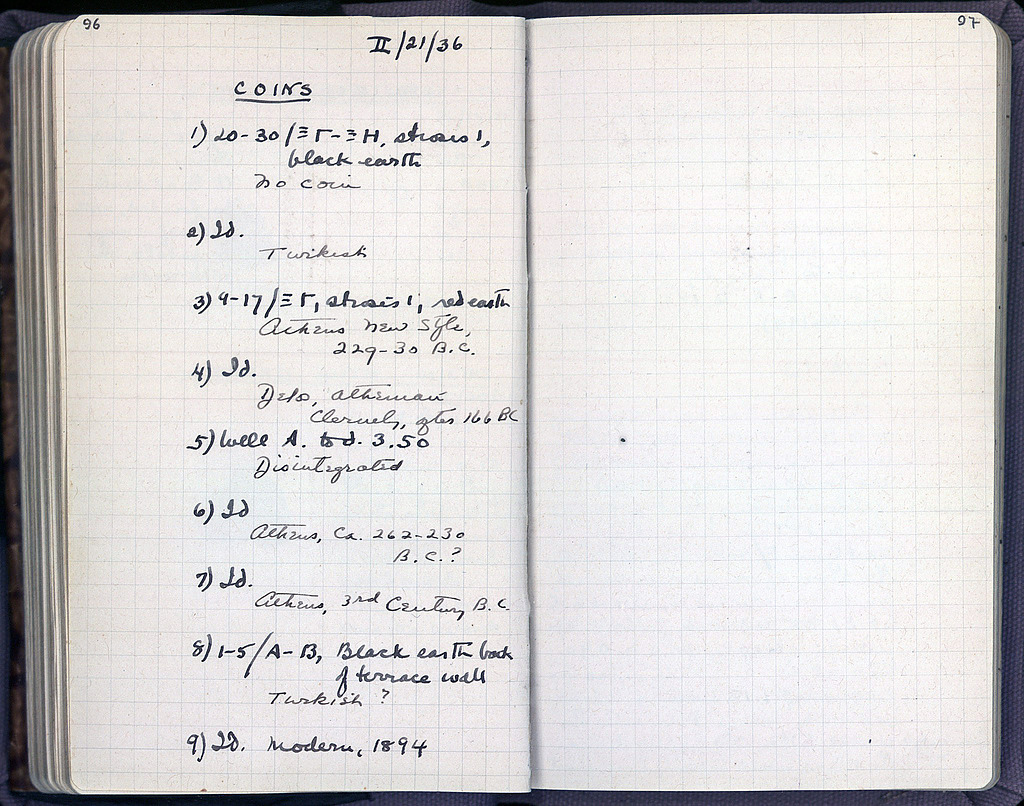 96
II/21/36
COINS
1) 20-30/ΞΓ-ΞΗ, strosis 1,
black earth
No coin
2) Id.
Turkish
3) 9-17/ΞΓ, strosis 1, red earth
Athens New Style,
229-30 B.C.
4) Id.
Delos, Athenian
Cleruchy, after 166 BC
5) Well A. to d. 3.50
Disintegrated
6) Id
Athens, Ca. 262-230
B.C.?
7) Id.
Athens, 3rd Century B.C.
8) 1-5/A-B, Black earth back
of terrace wall
Turkish ?
9) Id. Modern, 1894
97